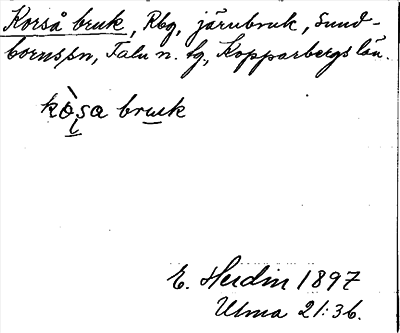 Korså bruk, Rbg, järnbruk, Sund-
bornssn, Falu n. tg, Kopparbergs län.
kò̱sa bruk
E. Hedin 1897
Ulma 21:36.